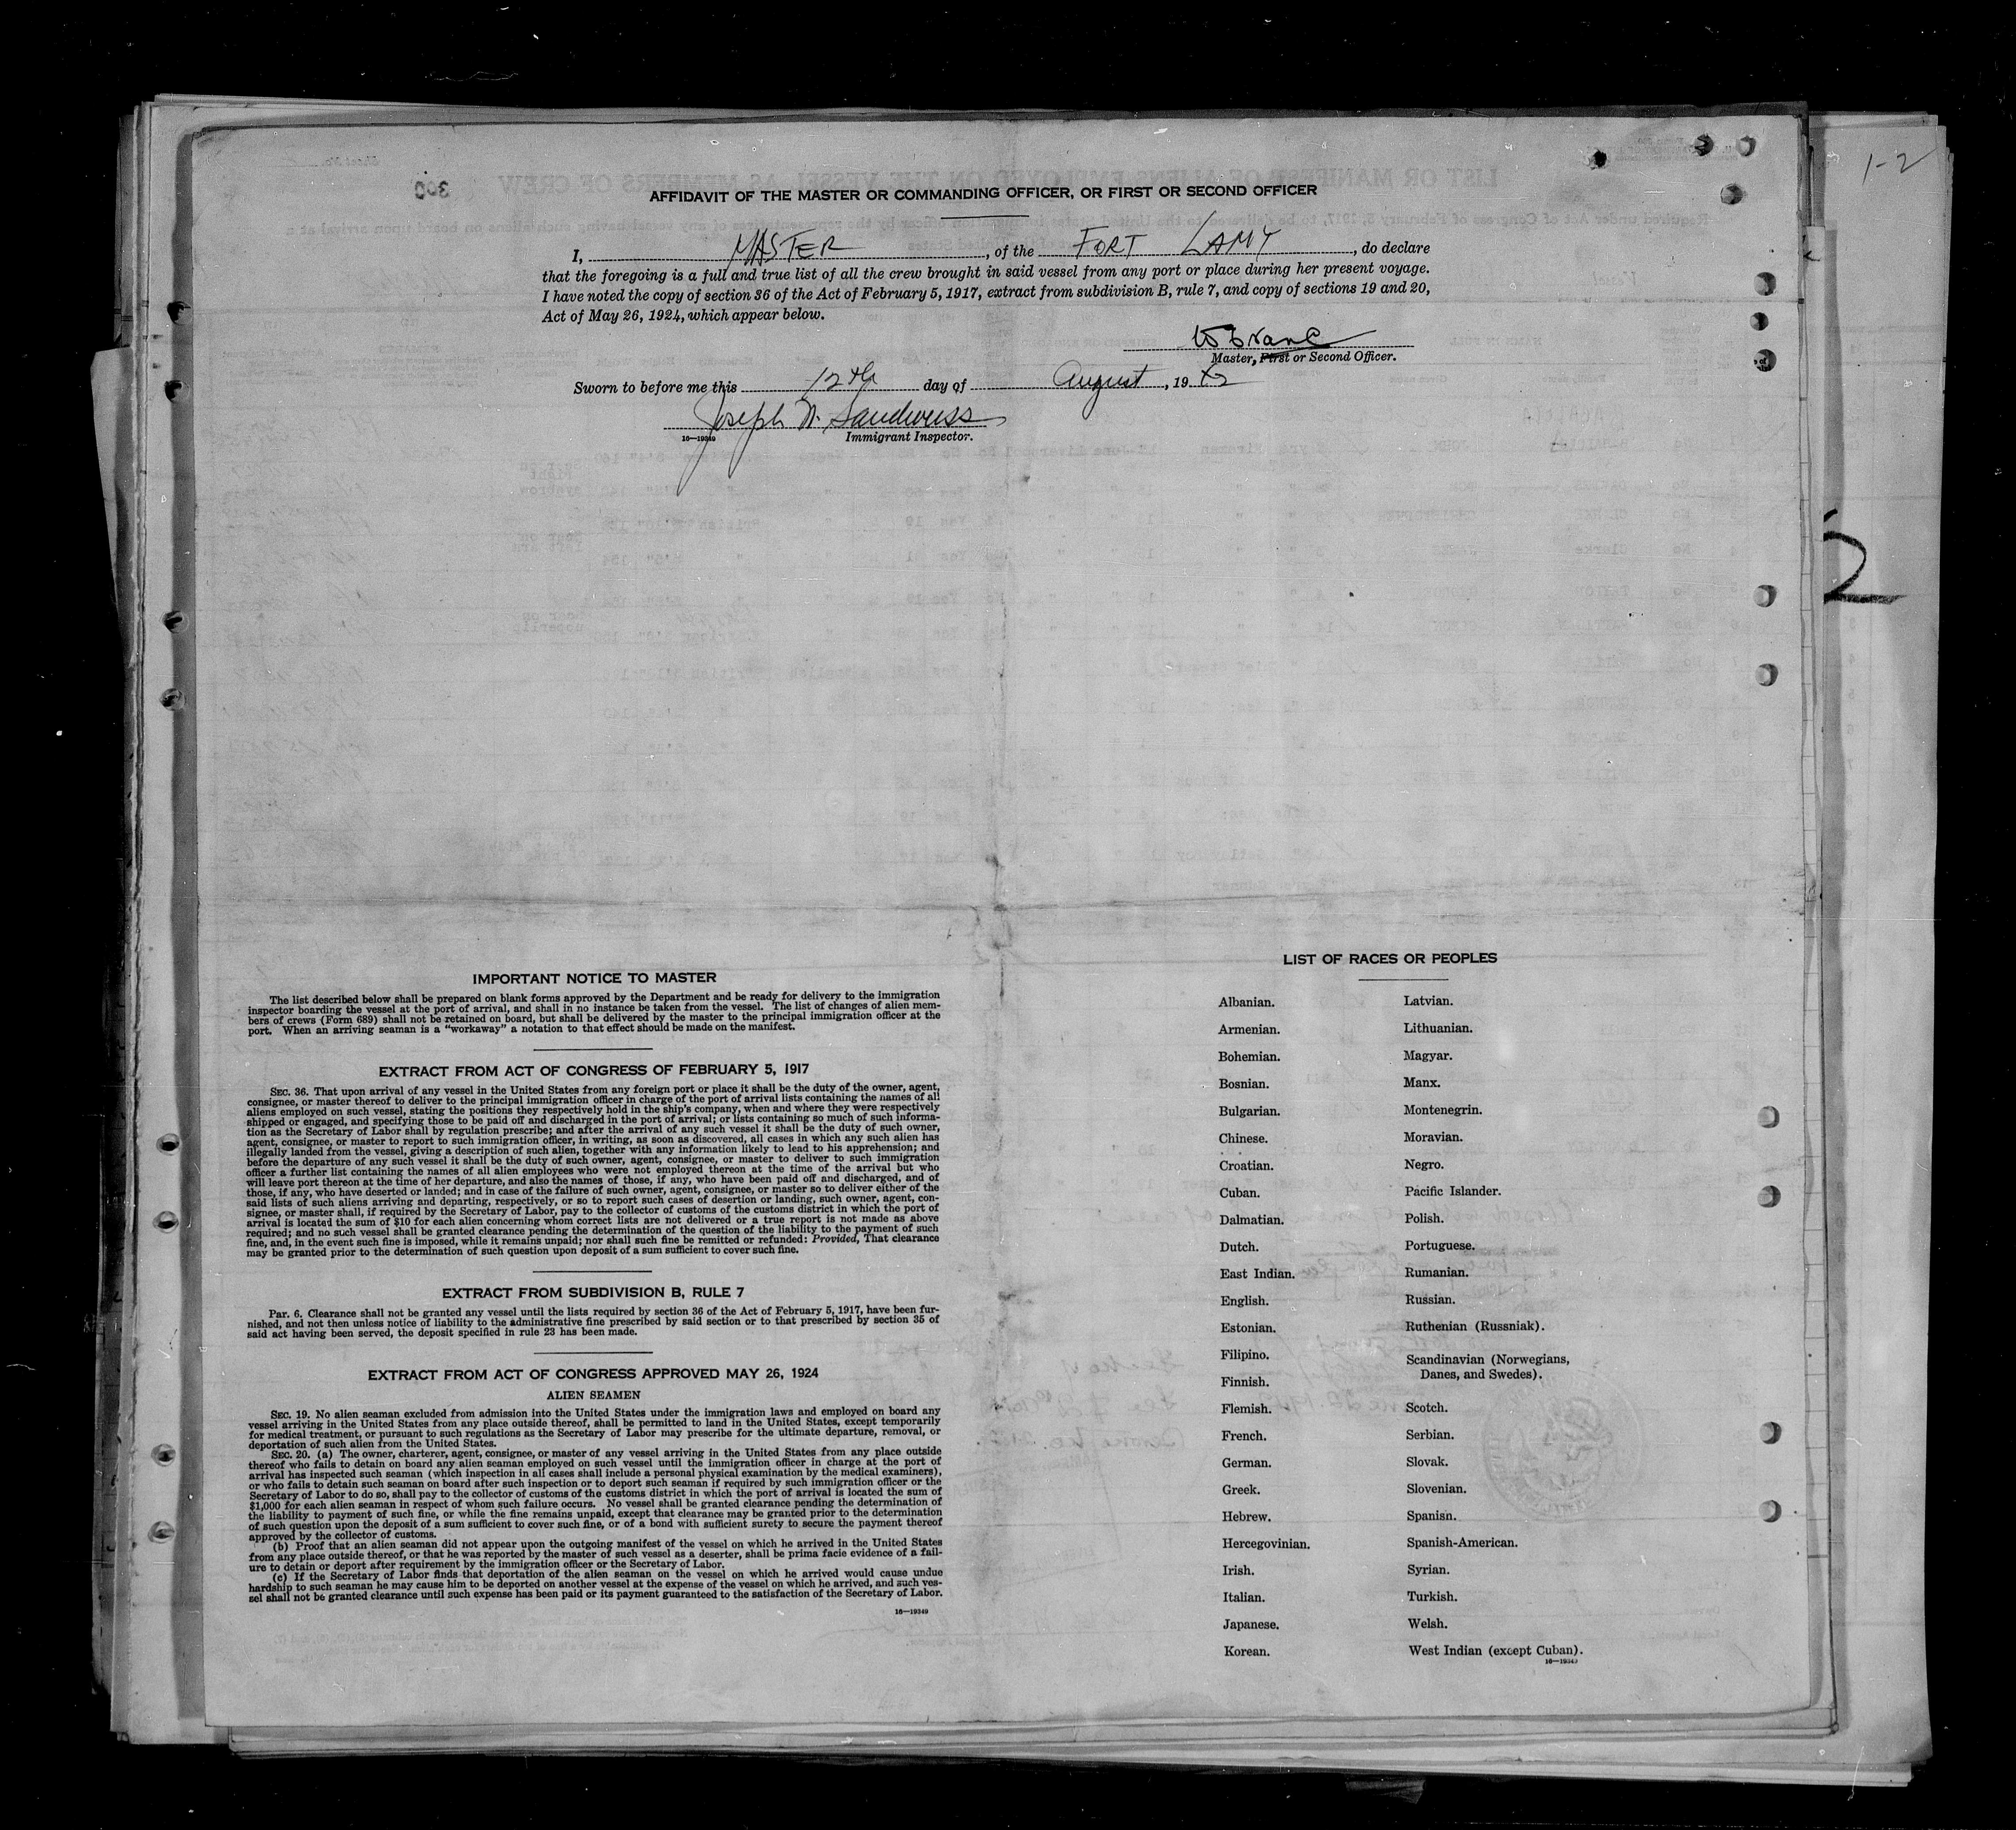 1-2
300
AFFIDAVIT OF THE MASTER OR COMMANDING OFFICER, OR FIRST OR SECOND OFFICER
I, MASTER, of the FORT LAMY, do declare
that the foregoing is a full and true list of all the crew brought in said vessel from any port or place during her present voyage.
I have noted the copy of section 36 of the Act of February 5, 1917, extract from subdivision B, rule 7, and copy of sections 19 and 20,
Act of May 26, 1924, which appear below.
Master, First or Second Officer.
Sworn to before me this 12th day of August, 1942
Joseph N. Sandweiss
16—19349 Immigrant Inspector.
2
IMPORTANT NOTICE TO MASTER
The list described below shall be prepared on blank forms approved by the Department and be ready for delivery to the immigration
inspector boarding the vessel at the port of arrival, and shall in no instance be taken from the vessel. The list of changes of alien mem-
bers of crews (Form 689) shall not be retained on board, but shall be delivered by the master to the principal immigration officer at the
port. When an arriving seaman is a "workaway" a notation to that effect should be made on the manifest.
EXTRACT FROM ACT OF CONGRESS OF FEBRUARY 5, 1917
SEC. 36. That upon arrival of any vessel in the United States from any foreign port or place it shall be the duty of the owner, agent,
consignee, or master thereof to deliver to the principal immigration officer in charge of the port of arrival lists containing the names of all
aliens employed on such vessel, stating the positions they respectively hold in the ship's company, when and where they were respectively
shipped or engaged, and specifying those to be paid off and discharged in the port of arrival; or lists containing so much of such informa-
tion as the Secretary of Labor shall by regulation prescribe; and after the arrival of any such vessel it shall be the duty of such owner,
agent, consignee, or master to report to such immigration officer, in writing, as soon as discovered, all cases in which any such alien has
illegally landed from the vessel, giving a description of such alien, together with any information likely to lead to his apprehension; and
before the departure of any such vessel it shall be the duty of such owner, agent, consignee, or master to deliver to such immigration
officer a further list containing the names of all alien employees who were not employed thereon at the time of the arrival but who
will leave port thereon at the time of her departure, and also the names of those, if any, who have been paid off and discharged, and of
those, if any, who have deserted or landed; and in case of the failure of such owner, agent, consignee, or master so to deliver either of the
said lists of such aliens arriving and departing, respectively, or so to report such cases of desertion or landing, such owner, agent, con-
signee, or master shall, if required by the Secretary of Labor, pay to the collector of customs of the customs district in which the port of
arrival is located the sum of $10 for each alien concerning whom correct lists are not delivered or a true report is not made as above
required; and no such vessel shall be granted clearance pending the determination of the question of the liability to the payment of such
fine, and, in the event such fine is imposed, while it remains unpaid; nor shall such fine be remitted or refunded: Provided, That clearance
may be granted prior to the determination of such question upon deposit of a sum sufficient to cover such fine.
EXTRACT FROM SUBDIVISION B, RULE 7
Par. 6. Clearance shall not be granted any vessel until the lists required by section 36 of the Act of February 5, 1917, have been fur-
nished, and not then unless notice of liability to the administrative fine prescribed by said section or to that prescribed by section 35 of
said act having been served, the deposit specified in rule 23 has been made.
EXTRACT FROM ACT OF CONGRESS APPROVED MAY 26, 1924
ALIEN SEAMEN
SEC. 19. No alien seaman excluded from admission into the United States under the immigration laws and employed on board any
vessel arriving in the United States from any place outside thereof, shall be permitted to land in the United States, except temporarily
for medical treatment, or pursuant to such regulations as the Secretary of Labor may prescribe for the ultimate departure, removal, or
deportation of such alien from the United States.
SEC. 20. (a) The owner, charterer, agent, consignee, or master of any vessel arriving in the United States from any place outside
thereof who fails to detain on board any alien seaman employed on such vessel until the immigration officer in charge at the port of
arrival has inspected such seaman (which inspection in all cases shall include a personal physical examination by the medical examiners),
or who fails to detain such seaman on board after such inspection or to deport such seaman if required by such immigration officer or the
Secretary of Labor to do so, shall pay to the collector of customs of the customs district in which the port of arrival is located the sum of
$1,000 for each alien seaman in respect of whom such failure occurs. No vessel shall be granted clearance pending the determination of
the liability to payment of such fine, or while the fine remains unpaid, except that clearance may be granted prior to the determination
of such question upon the deposit of a sum sufficient to cover such fine, or of a bond with sufficient surety to secure the payment thereof
approved by the collector of customs.
(b) Proof that an alien seaman did not appear upon the outgoing manifest of the vessel on which he arrived in the United States
from any place outside thereof, or that he was reported by the master of such vessel as a deserter, shall be prima facie evidence of a fail-
ure to detain or deport after requirement by the immigration officer or the Secretary of Labor.
(c) If the Secretary of Labor finds that deportation of the alien seaman on the vessel on which he arrived would cause undue
hardship to such seaman he may cause him to be deported on another vessel at the expense of the vessel on which he arrived, and such ves-
sel shall not be granted clearance until such expense has been paid or its payment guaranteed to the satisfaction of the Secretary of Labor.
16—19349
LIST OF RACES OR PEOPLES
Albanian.
Armenian.
Bohemian.
Bosnian.
Bulgarian.
Chinese.
Croatian.
Cuban.
Dalmatian.
Dutch.
East Indian.
English.
Estonian.
Filipino.
Finnish.
Flemish.
French.
German.
Greek.
Hebrew.
Hercegovinian.
Irish.
Italian.
Japanese.
Korean.
Latvian.
Lithuanian.
Magyar.
Manx.
Montenegrin.
Moravian.
Negro.
Pacific Islander.
Polish.
Portuguese.
Rumanian.
Russian.
Ruthenian (Russniak).
Scandinavian (Norwegians,
Danes, and Swedes).
Scotch.
Serbian.
Slovak.
Slovenian.
Spanish.
Spanish-American.
Syrian.
Turkish.
Welsh.
West Indian (except Cuban).
16—19349